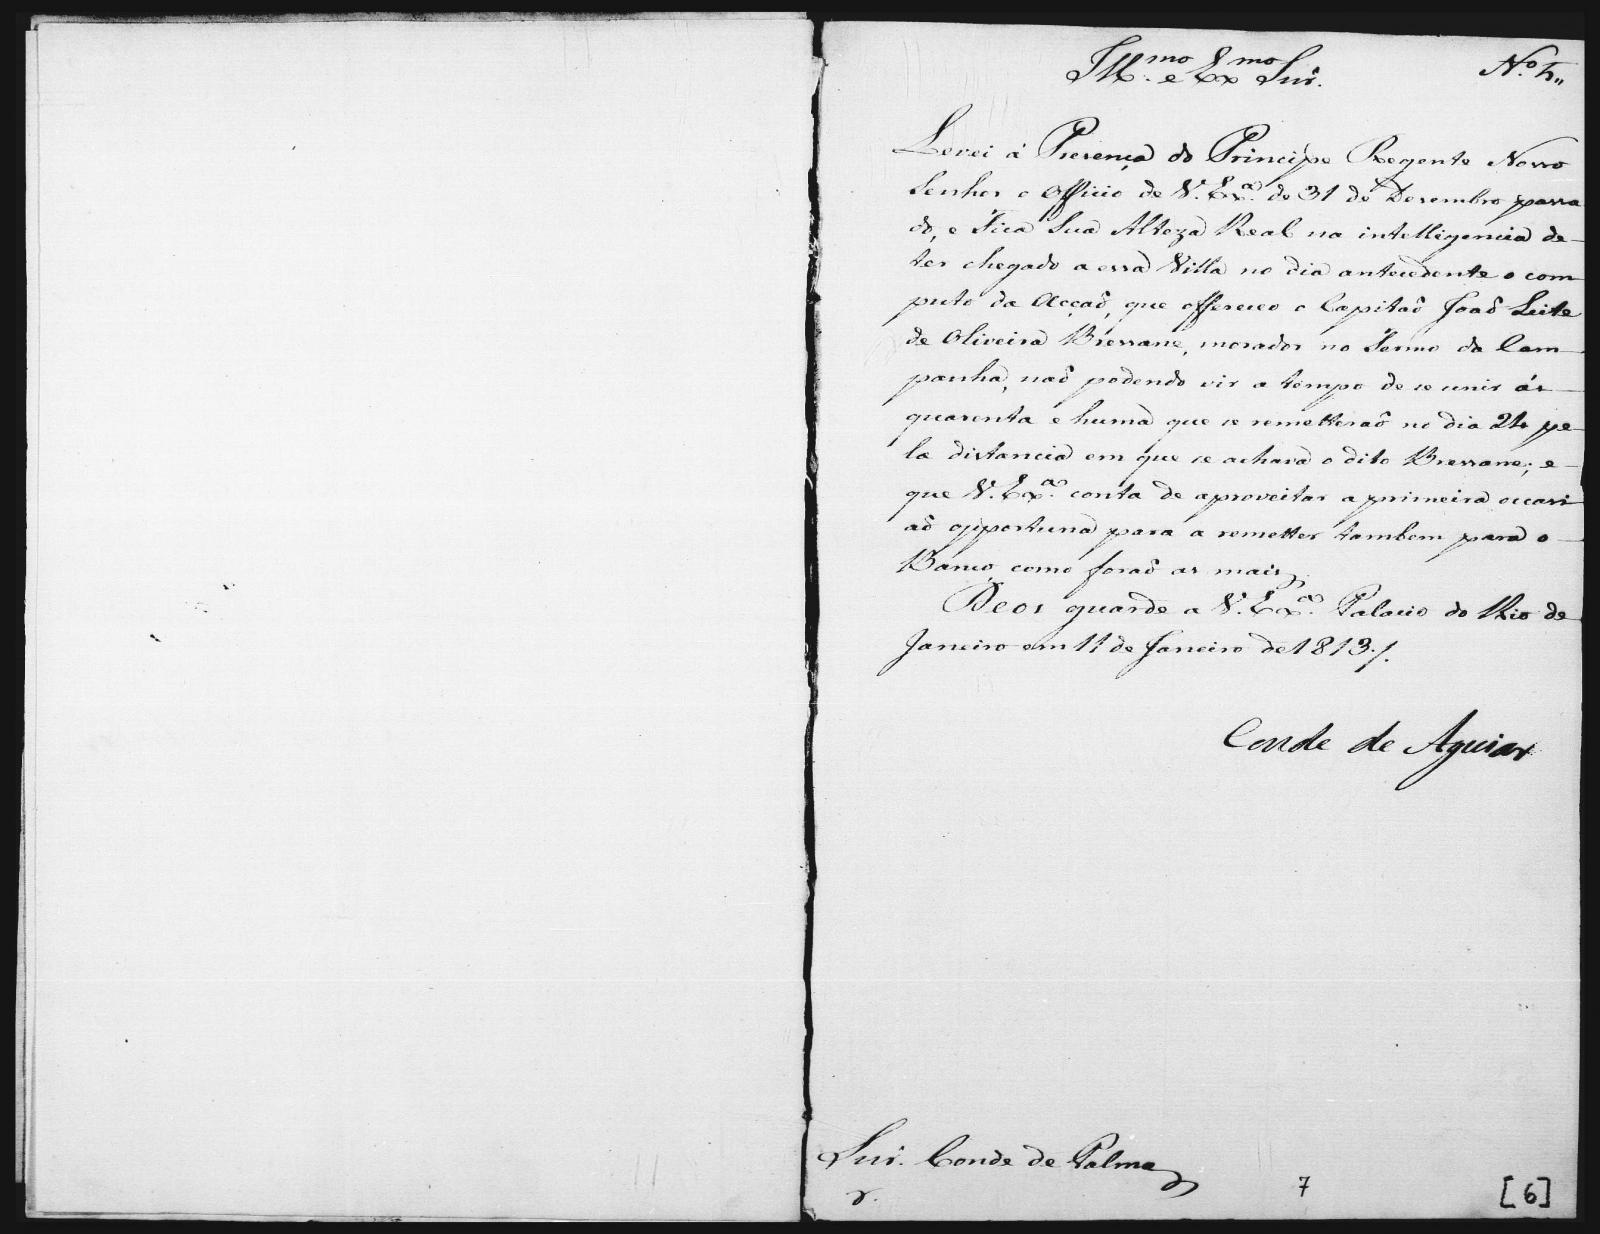 Ill.mo e Ex.mo Snr.
N.o 5,,
Levei á Presença do Principe Regente Nosso
Senhor o Officio de V. Ex.a de 31 de Desembro passa
do, e Fica Sua Alteza Real na intelligencia de
ter chegado a essa Villa no dia antecedente o com
puto da Acçaõ, que offereceo o Capitaõ Joaõ Leite
de Oliveira Bressane, morador no Termo da Cam
panha, naõ podendo vir a tempo de se unir ás
quarenta e huma que se remetteraõ no dia 24 pe
la distancia em que se achava o dito Bressane; e
que V. Ex.a conta de aproveitar a primeira occasi
aõ opportuna para a remetter tambem para o
Banco, como foraõ as mais,
Deos guarde a V. Ex.a Palacio do Rio de
Janeiro em 11 de Janeiro de 1813./.
Conde de Aguiar
Snr. Conde de Palma
7
[6]